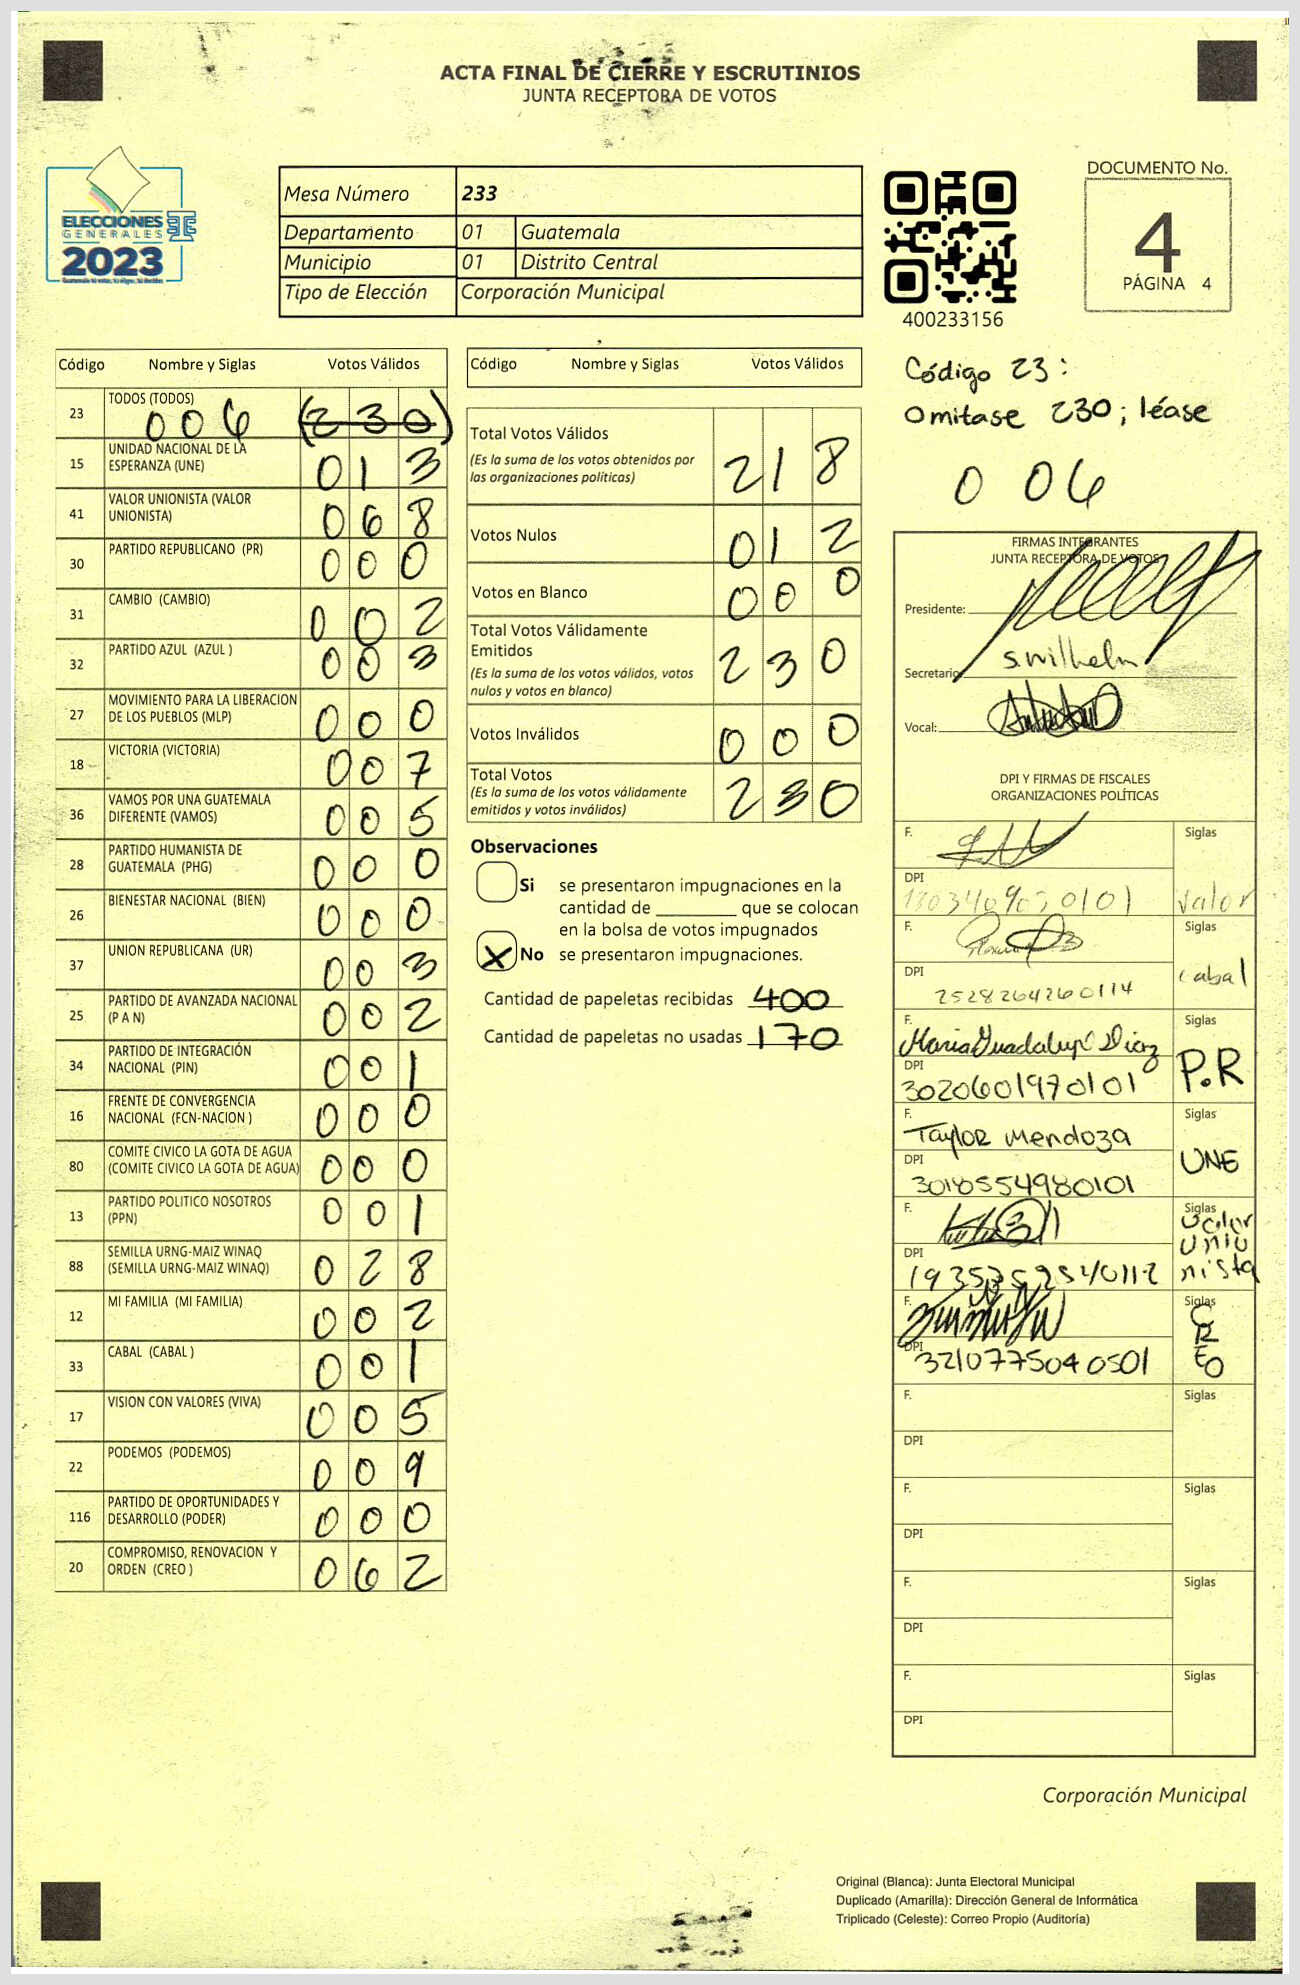 ACTA FINAL DE CIERRE Y ESCRUTINIOS
JUNTA RECEPTORA DE VOTOS
ELECCIONES
GENERALES
2023
Mesa Número 233
Departamento 01 Guatemala
Municipio 01 Distrito Central
Tipo de Elección Corporación Municipal
400233156
DOCUMENTO No.
4
PÁGINA 4
Código Nombre y Siglas Votos Válidos
23 TODOS (TODOS) 006 (230)
15 UNIDAD NACIONAL DE LA
ESPERANZA (UNE) 013
41 VALOR UNIONISTA (VALOR
UNIONISTA) 068
30 PARTIDO REPUBLICANO (PR) 000
31 CAMBIO (CAMBIO) 002
32 PARTIDO AZUL (AZUL ) 003
27 MOVIMIENTO PARA LA LIBERACION
DE LOS PUEBLOS (MLP) 000
18 VICTORIA (VICTORIA) 007
36 VAMOS POR UNA GUATEMALA
DIFERENTE (VAMOS) 005
28 PARTIDO HUMANISTA DE
GUATEMALA (PHG) 000
26 BIENESTAR NACIONAL (BIEN) 000
37 UNION REPUBLICANA (UR) 003
25 PARTIDO DE AVANZADA NACIONAL
(P A N) 002
34 PARTIDO DE INTEGRACIÓN
NACIONAL (PIN) 001
16 FRENTE DE CONVERGENCIA
NACIONAL (FCN-NACION ) 000
80 COMITE CIVICO LA GOTA DE AGUA
(COMITE CIVICO LA GOTA DE AGUA) 000
13 PARTIDO POLITICO NOSOTROS
(PPN) 001
88 SEMILLA URNG-MAIZ WINAQ
(SEMILLA URNG-MAIZ WINAQ) 028
12 MI FAMILIA (MI FAMILIA) 002
33 CABAL (CABAL ) 001
17 VISION CON VALORES (VIVA) 005
22 PODEMOS (PODEMOS) 009
116 PARTIDO DE OPORTUNIDADES Y
DESARROLLO (PODER) 000
20 COMPROMISO, RENOVACION Y
ORDEN (CREO ) 062
Código Nombre y Siglas Votos Válidos
Total Votos Válidos 218
(Es la suma de los votos obtenidos por
las organizaciones políticas)
Votos Nulos 012
Votos en Blanco 000
Total Votos Válidamente
Emitidos 230
(Es la suma de los votos válidos, votos
nulos y votos en blanco)
Votos Inválidos 000
Total Votos 230
(Es la suma de los votos válidamente
emitidos y votos inválidos)
Observaciones
Si se presentaron impugnaciones en la
cantidad de ________ que se colocan
en la bolsa de votos impugnados
X No se presentaron impugnaciones.
Cantidad de papeletas recibidas 400
Cantidad de papeletas no usadas 170
Código 23:
Omitase 230; léase
006
FIRMAS INTEGRANTES
JUNTA RECEPTORA DE VOTOS
Presidente:
Secretario: S. Wilhelm
Vocal:
DPI Y FIRMAS DE FISCALES
ORGANIZACIONES POLÍTICAS
F. Siglas
DPI valor
F. Siglas
DPI 2528264260114 cabal
F. Maria Guadalupe Diaz Siglas
DPI 3020601970101 P.R
F. Taylor Mendoza Siglas
DPI 3018554980101 UNE
F. Siglas
DPI Valor
Unio
nista
F. Siglas
DPI 3210775040501 CREO
F. Siglas
DPI
F. Siglas
DPI
F. Siglas
DPI
F. Siglas
DPI
Corporación Municipal
Original (Blanca): Junta Electoral Municipal
Duplicado (Amarilla): Dirección General de Informática
Triplicado (Celeste): Correo Propio (Auditoría)